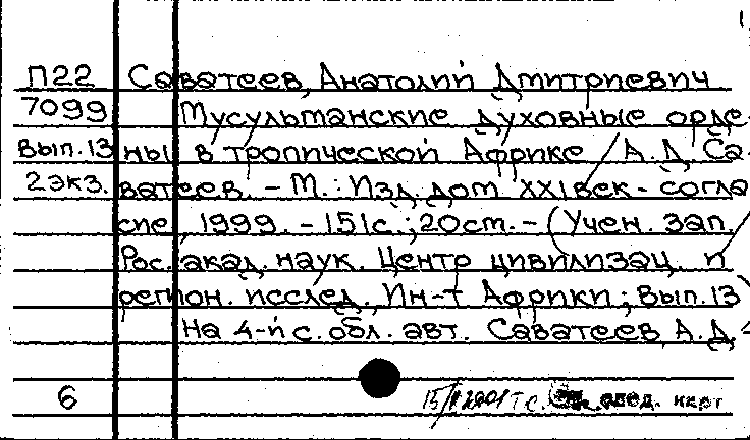 П22 Саватеев, Анатолий Дмитриевич
7099 Мусульманские духовные орде-
Вып.13 ны в тропической Африке / А.Д. Са-
2экз. ватеев. - М.: Изд. дом XXI век - согла-
сие, 1999. - 151с.; 20см. - (Учен. зап. /
Рос. акад. наук. Центр цивилизац. и
регион. исслед. Ин-т Африки; Вып.13)
На 4-й с. обл. авт. Саватеев А.Д.
6